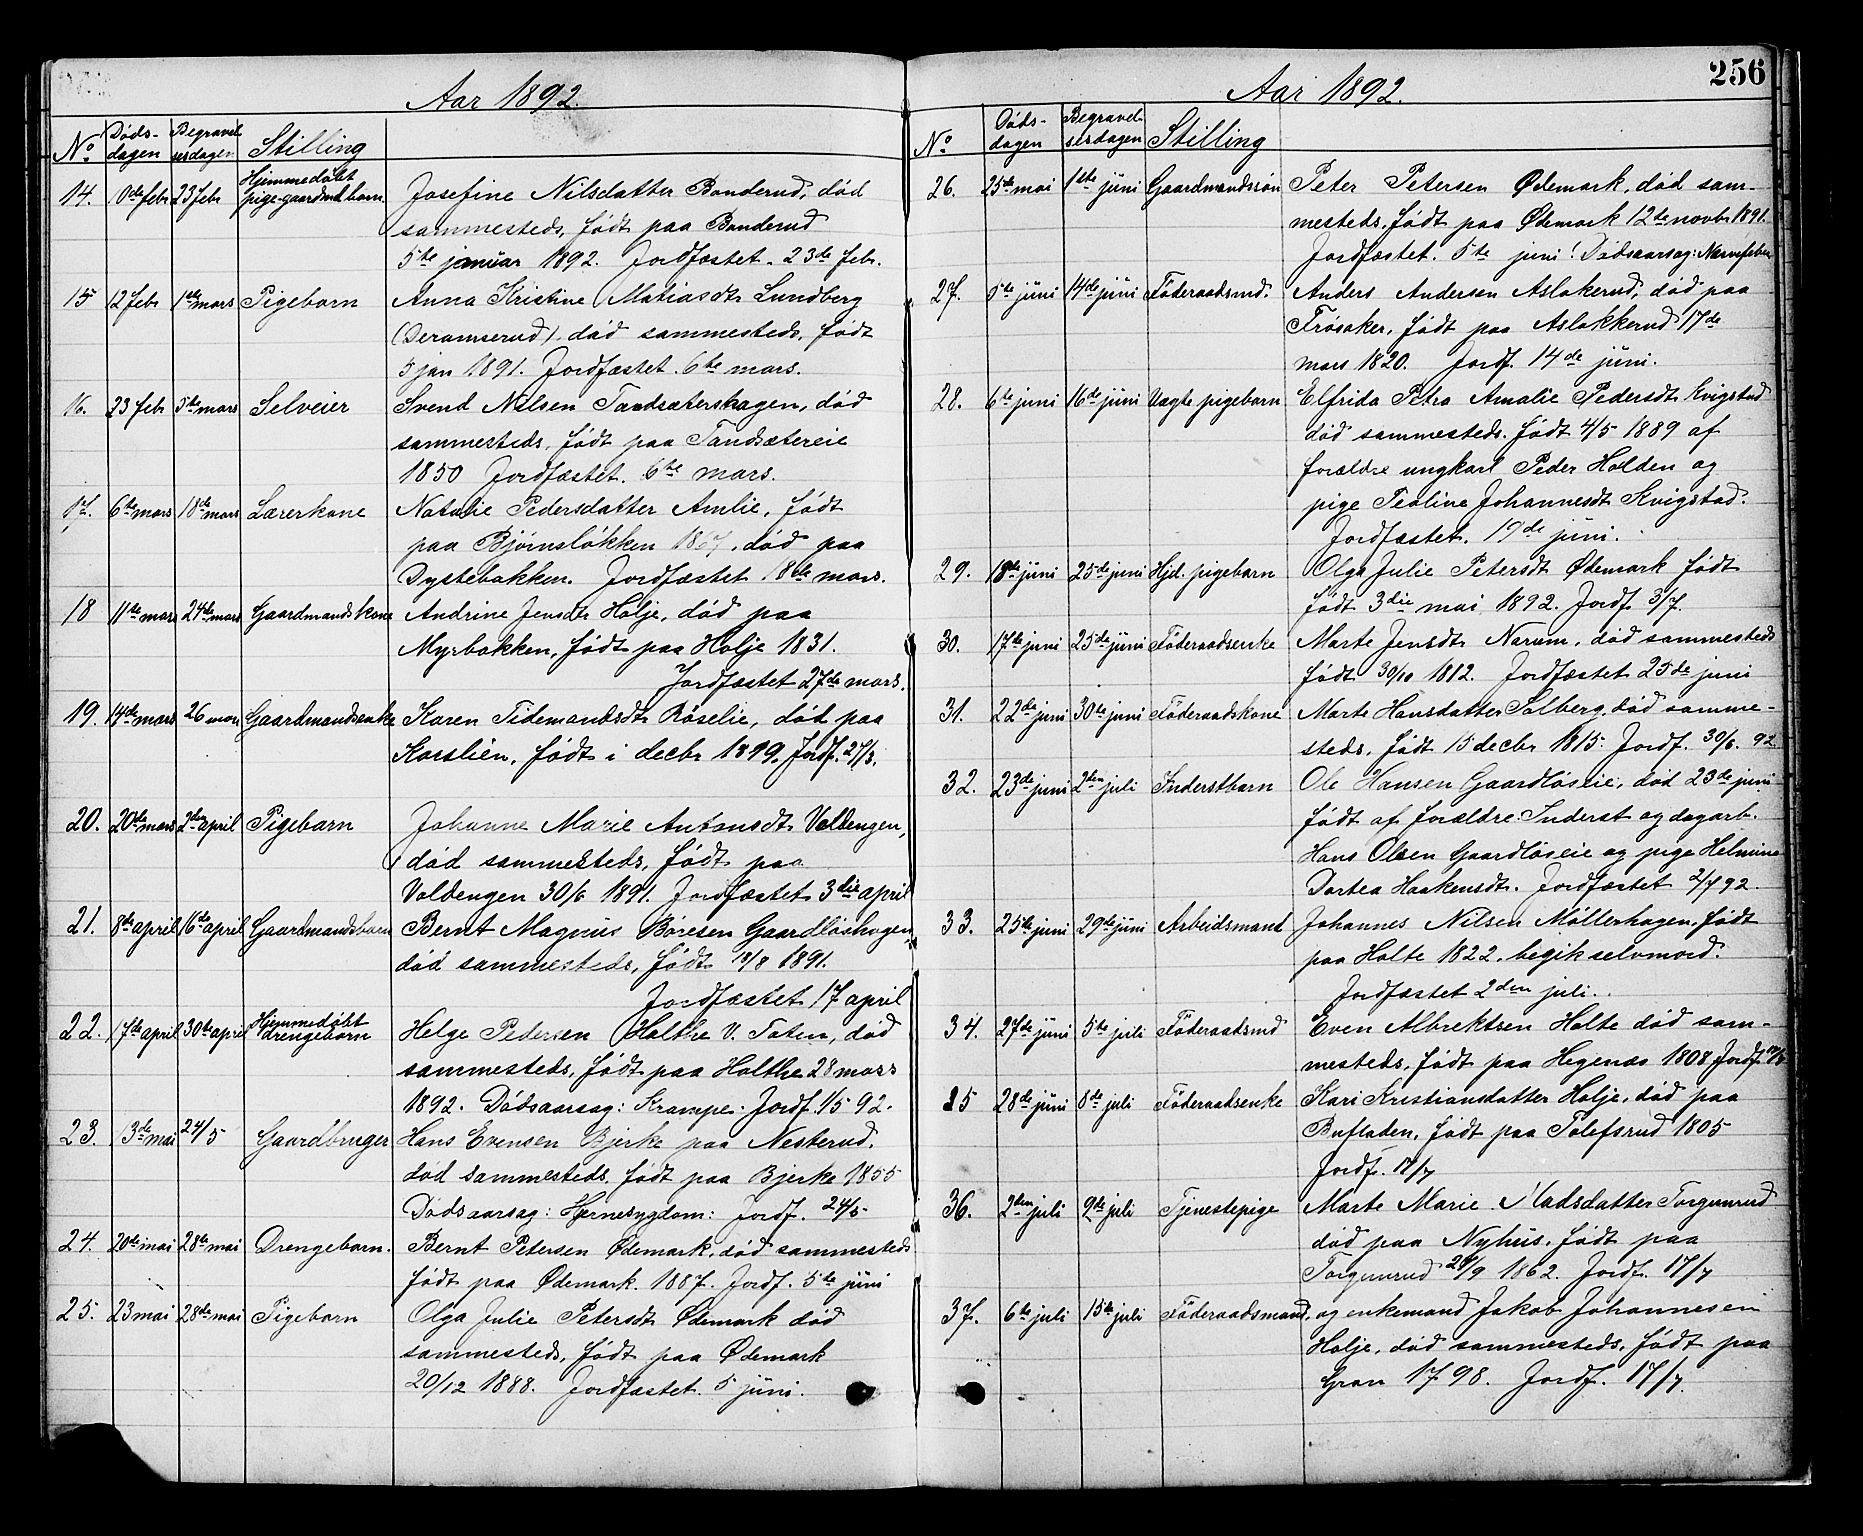 Aar 1892.
No Döds-dagen Begravelsesdagen Stilling
14. 0de febr 23 febr Hjemmedøbt pige-gaardmd.barn Josefine Nilsdatter Banderud, död
sammesteds, födt paa Banderud
5te januar 1892. Jordfæstet. 23de febr.
15 12 febr 1ste mars Pigebarn Anna Kristine Matiasdtr Lundberg
(Deramserud), död sammesteds, födt
5 jan 1891. Jordfæstet. 6te mars.
16. 23 febr 5te mars Selveier Svend Nilsen Tandsæterskagen, död
sammesteds, födt paa Tandsætereie
1850 Jordfæstet. 6te mars.
17. 6te mars 18de mars Lærerkone Natalie Pedersdatter Amlie, födt
paa Bjørnsløkken 1867, död paa
Dystebakken. Jordfæstet 18de mars.
18 11te mars 24de mars Gaardmandskone Andrine Jensdtr Holje, död paa
Myrbakken, födt paa Holje 1831.
Jordfæstet 27de mars.
19. 14de mars 26 mars Gaardmandsenke Karen Tidemandsdtr Röselie, död paa
Korslien, födt i decbr 1819. Jordf. 27/3.
20. 20de mars 2den april Pigebarn Johanne Marie Antonsdtr Valdengen,
död sammesteds, födt paa
Valdengen 30/6 1891. Jordfæstet 3die april
21. 8de april 16de april Gaardmandsbarn Bernt Magnus Böresen Gaardløshagen,
död sammesteds, födt 18/8 1891.
Jordfæstet 17 april
22. 17de april 30te april Hjemmedøbt drengebarn Helge Pedersen Holthe V. Toten, död
sammesteds, födt paa Holthe 28 mars
1892. Dödsaarsag: Krampe. Jordf. 1/5 92.
23. 13de mai 24/5 Gaardbruger Hans Evensen Bjerke paa Nesterud,
död sammesteds, födt paa Bjerke 1855
Dödsaarsag: Hjernesygdom: Jordf. 24/5
24. 20de mai 28de mai Drengebarn. Bernt Petersen Ødemark, död sammesteds
födt paa Ødemark. 1887. Jordf. 5te juni
25. 23 mai 28de mai Pigebarn Olga Julie Petersdt Ødemark död
sammesteds, födt paa Ødemark
20/12 1888. Jordfæstet. 5 juni.
256
Aar 1892.
No Döds-dagen Begravelsesdagen Stilling
26. 25de mai 1ste juni Gaardmandssön Peter Petersen Ødemark, död sam-
mesteds, födt paa Ødemark 12te novbr 1891.
Jordfæstet. 5te juni! Dödsaarsag: Nervefeber
27. 5te juni 14de juni Föderaadsmd. Anders Andersen Aslakerud, död paa
Frösaker, födt paa Aslakkerud 17de
mars 1820. Jordf. 14de juni.
28. 6te juni 16de juni Uægte pigebarn Elfrida Petra Amalie Pedersdt Kvigstad
död sammesteds. födt 4/5 1889 af
forældre ungkarl Peder Holden og
pige Teoline Johannesdt Kvigstad.
Jordfæstet. 19de juni.
29. 18de juni 25de juni Hjd. pigebarn Olga Julie Petersdt Ødemark födt
födt 3die mai 1892. Jordf. 3/7.
30. 17de juni 25de juni Föderaadsenke Marte Jensdtr Narum, död sammesteds
födt 30/10 1812. Jordfæstet 25de juni
31. 22de juni 30te juni Föderaadskone Marte Hansdatter Solberg, död samme-
steds, födt 15 decbr 1815. Jordf. 30/6. 92
32. 23de juni 2den juli Inderstbarn Ole Hansen Gaardløseie, död 23de juni
födt af forældre: Inderst og dagarb.
Hans Olsen Gaardløseie og pige Helmine
Dortea Haakensdt. Jordfæstet 2/7 92.
33. 25te juni 29de juni Arbeidsmand Johannes Nilsen Möllerhagen, födt
paa Holte 1822. begik selvmord.
Jordfæstet 2den juli.
34. 27de juni 5te juli Föderaadsmd Even Albrektsen Holte död sam-
mesteds, födt paa Hegenæs 1808 Jordf.
35 28de juni 8de juli Föderaadsenke Kari Kristiansdatter Holje, död paa
Bufladen, födt paa Tolefsrud 1805
Jordf. 17/7
36. 2den juli 9de juli Tjenestepige Marte Marie Madsdatter Torgunrud
död paa Nyhus, födt paa
Torgunrud 29/9 1862. Jordf. 17/7
37. 6te juli 15te juli Föderaadsmand, og enkemand Jakob Johannesen
Holje, död sammesteds, födt paa
Gran 1798. Jordf. 17/7.